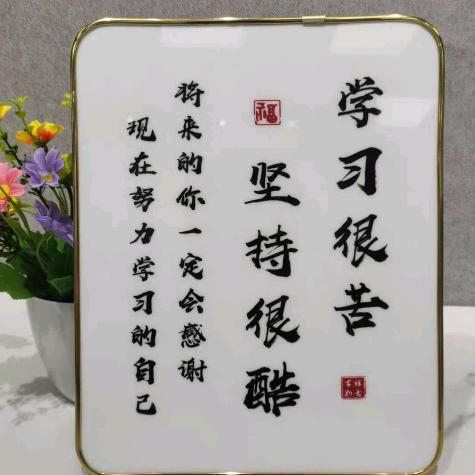 学习很苦
福
坚持很酷
将来的你一定会感谢
现在努力学习的自己